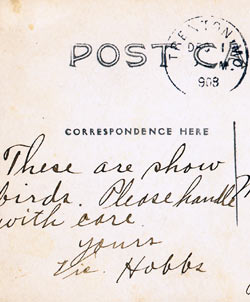 POST C
TRENTON, MO.
DEC 1
M
1908
CORRESPONDENCE HERE
These are show
birds. Please handle
with care
yours
Vic. Hobbs